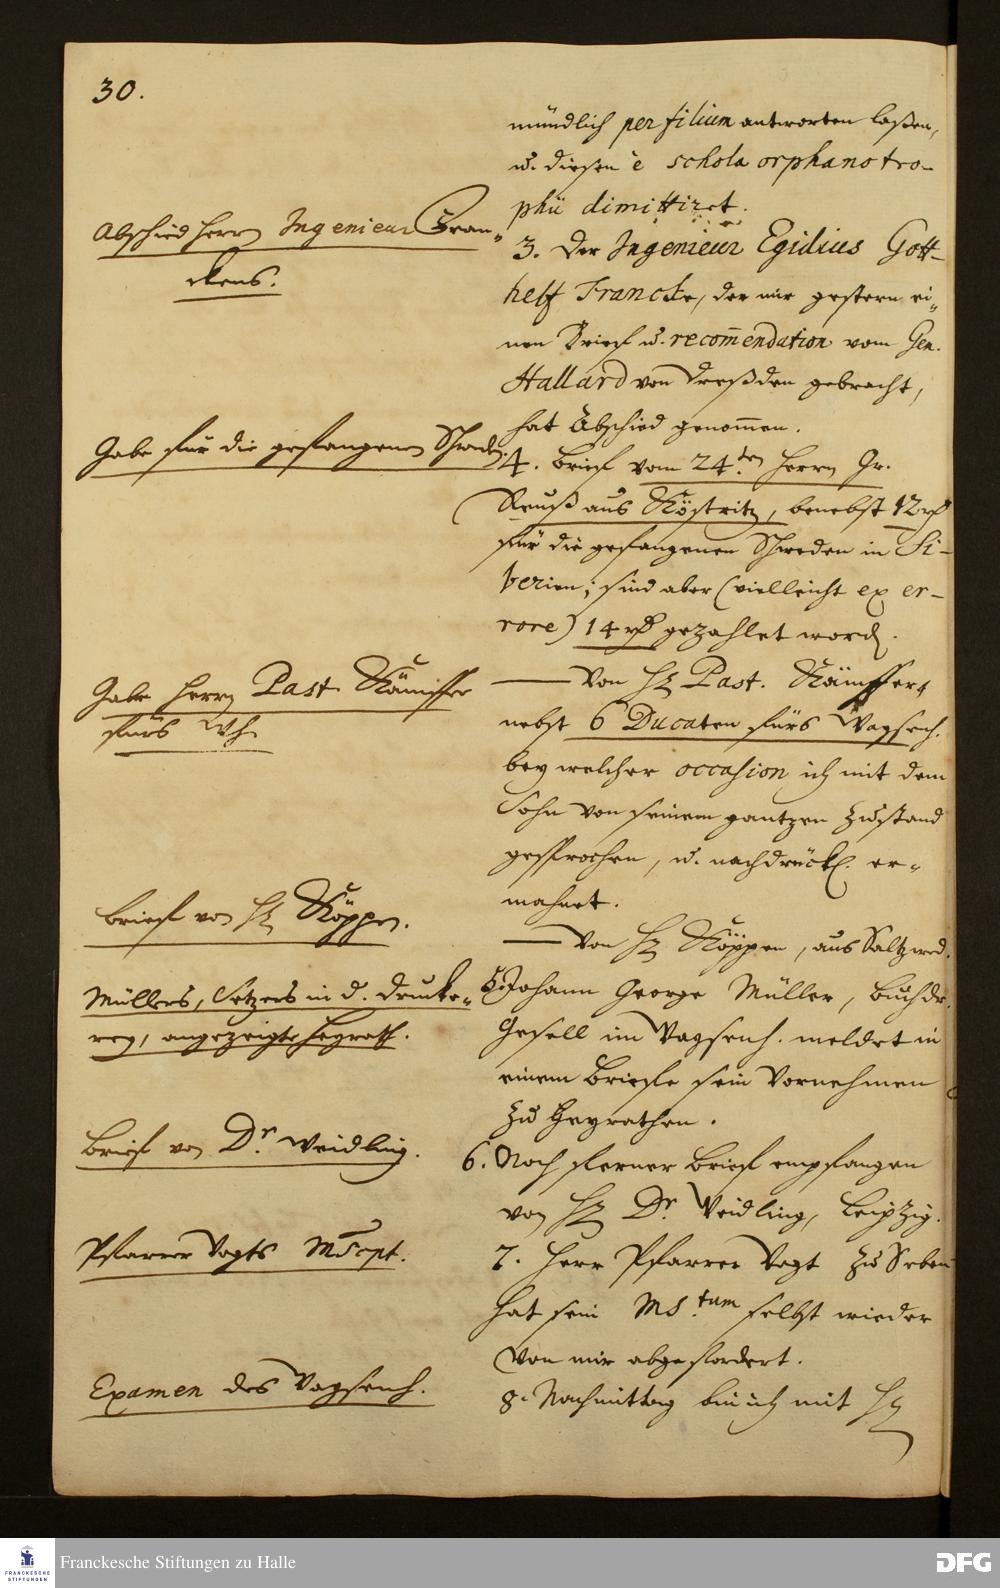 30.
mündlich per filium antworten laßen,
u. diesen è schola orphanotro-
phii dimittiret.
Abschied Herrn Ingenieur Fran-
ckens.
3. Der Ingenieur Egidius Gott-
helf Francke, der mir gestern ei-
nen Brief u. recom̄endation vom Gen.
Hallard von Dreßden gebracht,
hat Abschied genom̄en.
Gabe für die gefangenen Schweden.
4. Brief vom 24.ten Herrn Gr.
Reuß aus Köstritz, benebst 12 rth
für die gefangenen Schweden in Si-
berien; sind aber (vielleicht ex er-
rore) 14 rth gezahlet word.
Gabe Herrn Past. Kämpffer
fürs Wh.
— Von H. Past. Kämpffer,
nebst 6 Ducaten fürs Waysenh.
bey welcher occasion ich mit dem
Sohn von seinem gantzen Zustand
gesprochen, u. nachdrückl. er-
mahnet.
Brief von H. Köppen.
— Von H. Köppen, aus Saltzwed.
Müllers, Setzers in d. Drucke-
rey, angezeigte Heyrath.
5. Johann George Müller, Buchdr.
Gesell im Waysenh. meldet in
einem Briefe sein Vornehmen
zu heyrathen.
Brief von Dr. Weidling.
6. Noch ferner Brief empfangen
von H. Dr. Weidling, Leipzig.
Pfarrer Vogts MScpt.
7. Herr Pfarrer Vogt zu Seben
hat sein MS.tum selbst wieder
von mir abgefordert.
Examen des Waysenh.
8. Nachmittag bin ich mit H.
Franckesche Stiftungen zu Halle
FRANCKESCHE
STIFTUNGEN
DFG